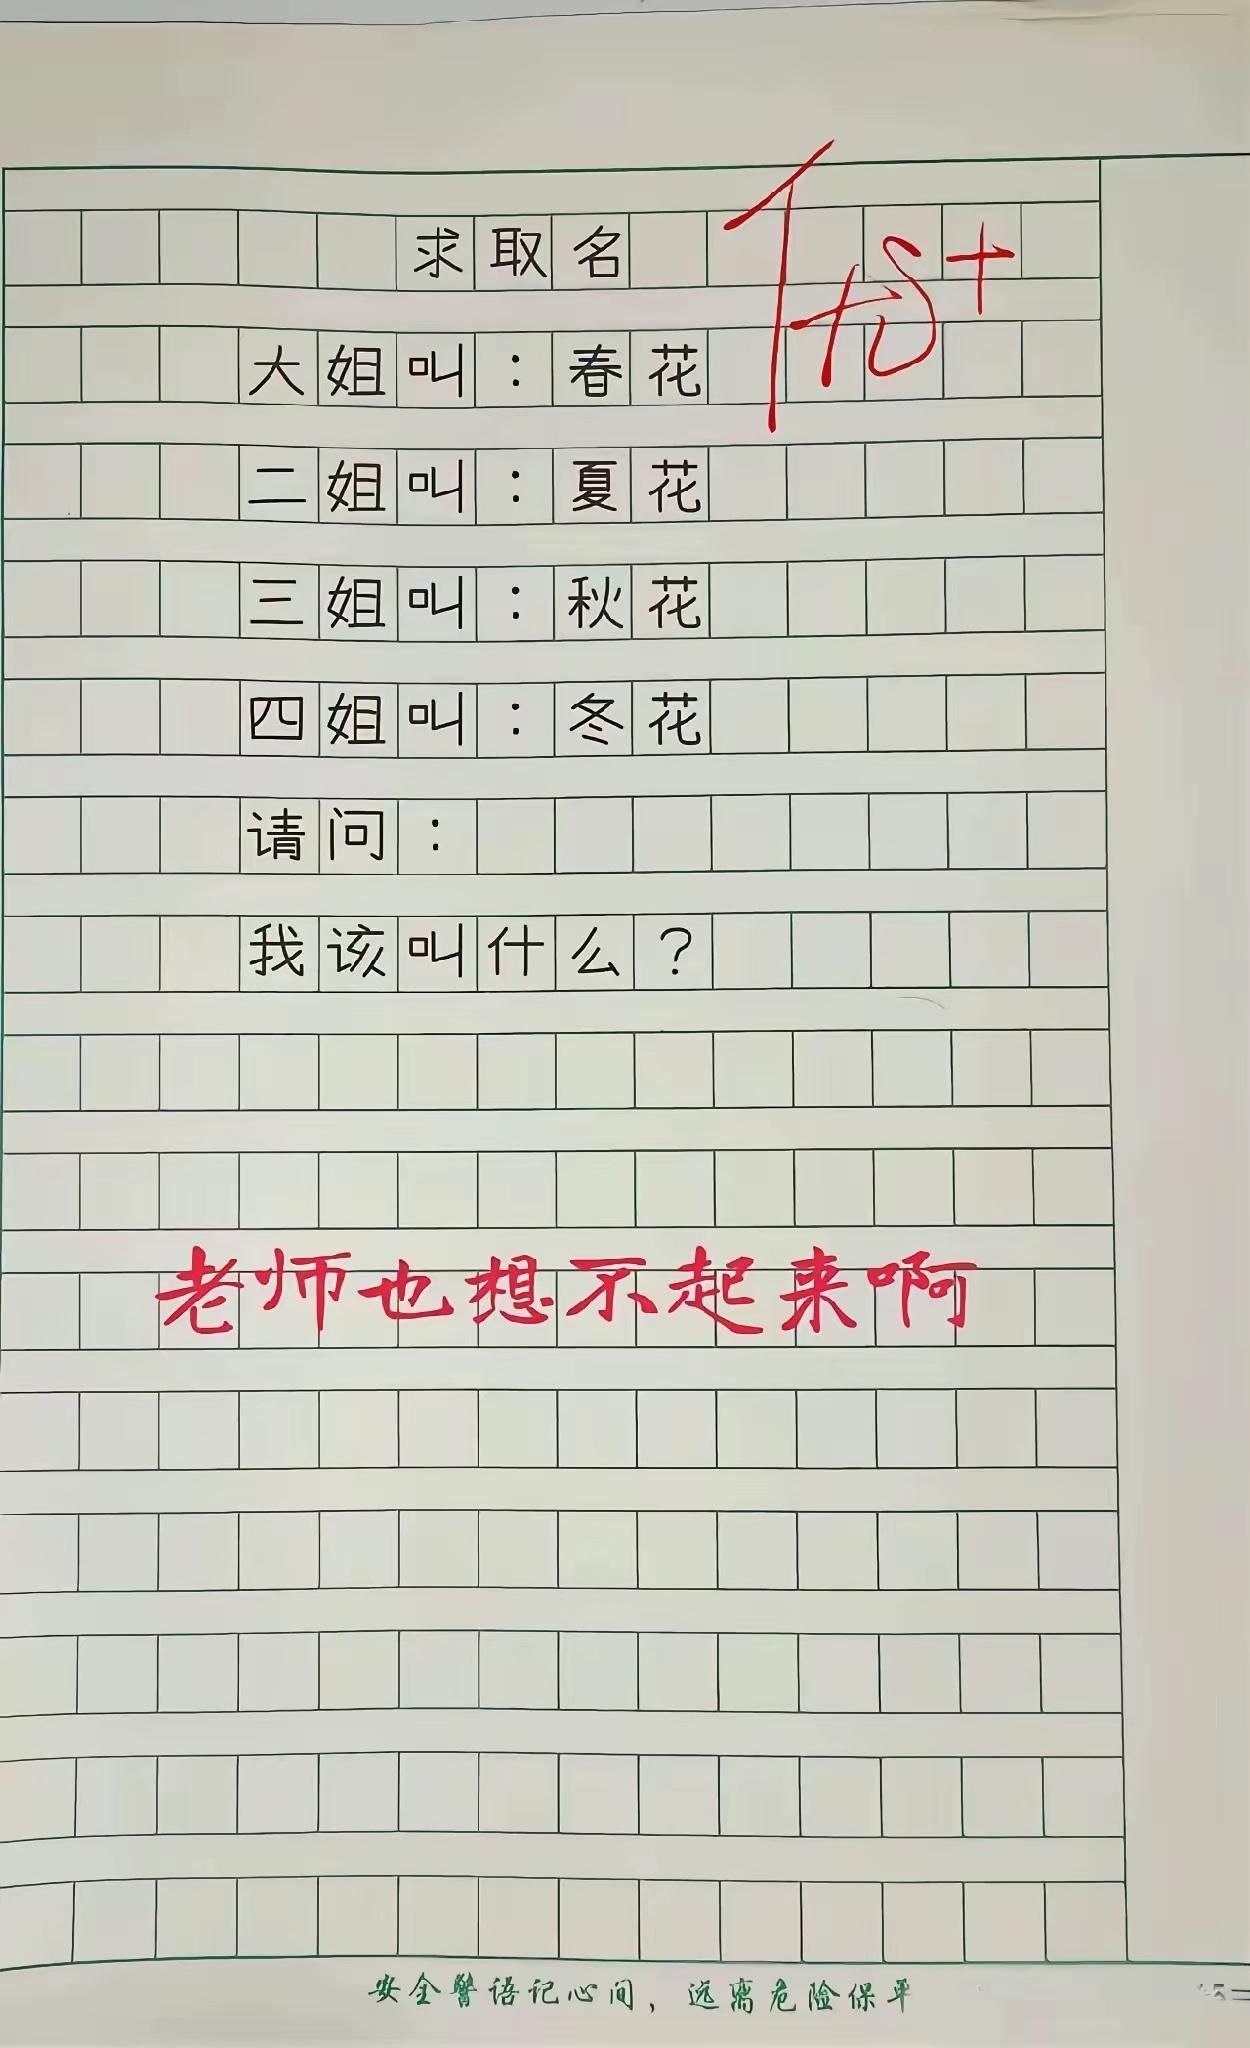 求取名
大姐叫：春花
二姐叫：夏花
三姐叫：秋花
四姐叫：冬花
请问：
我该叫什么？
老师也想不起来啊
安全警语记心间，远离危险保平